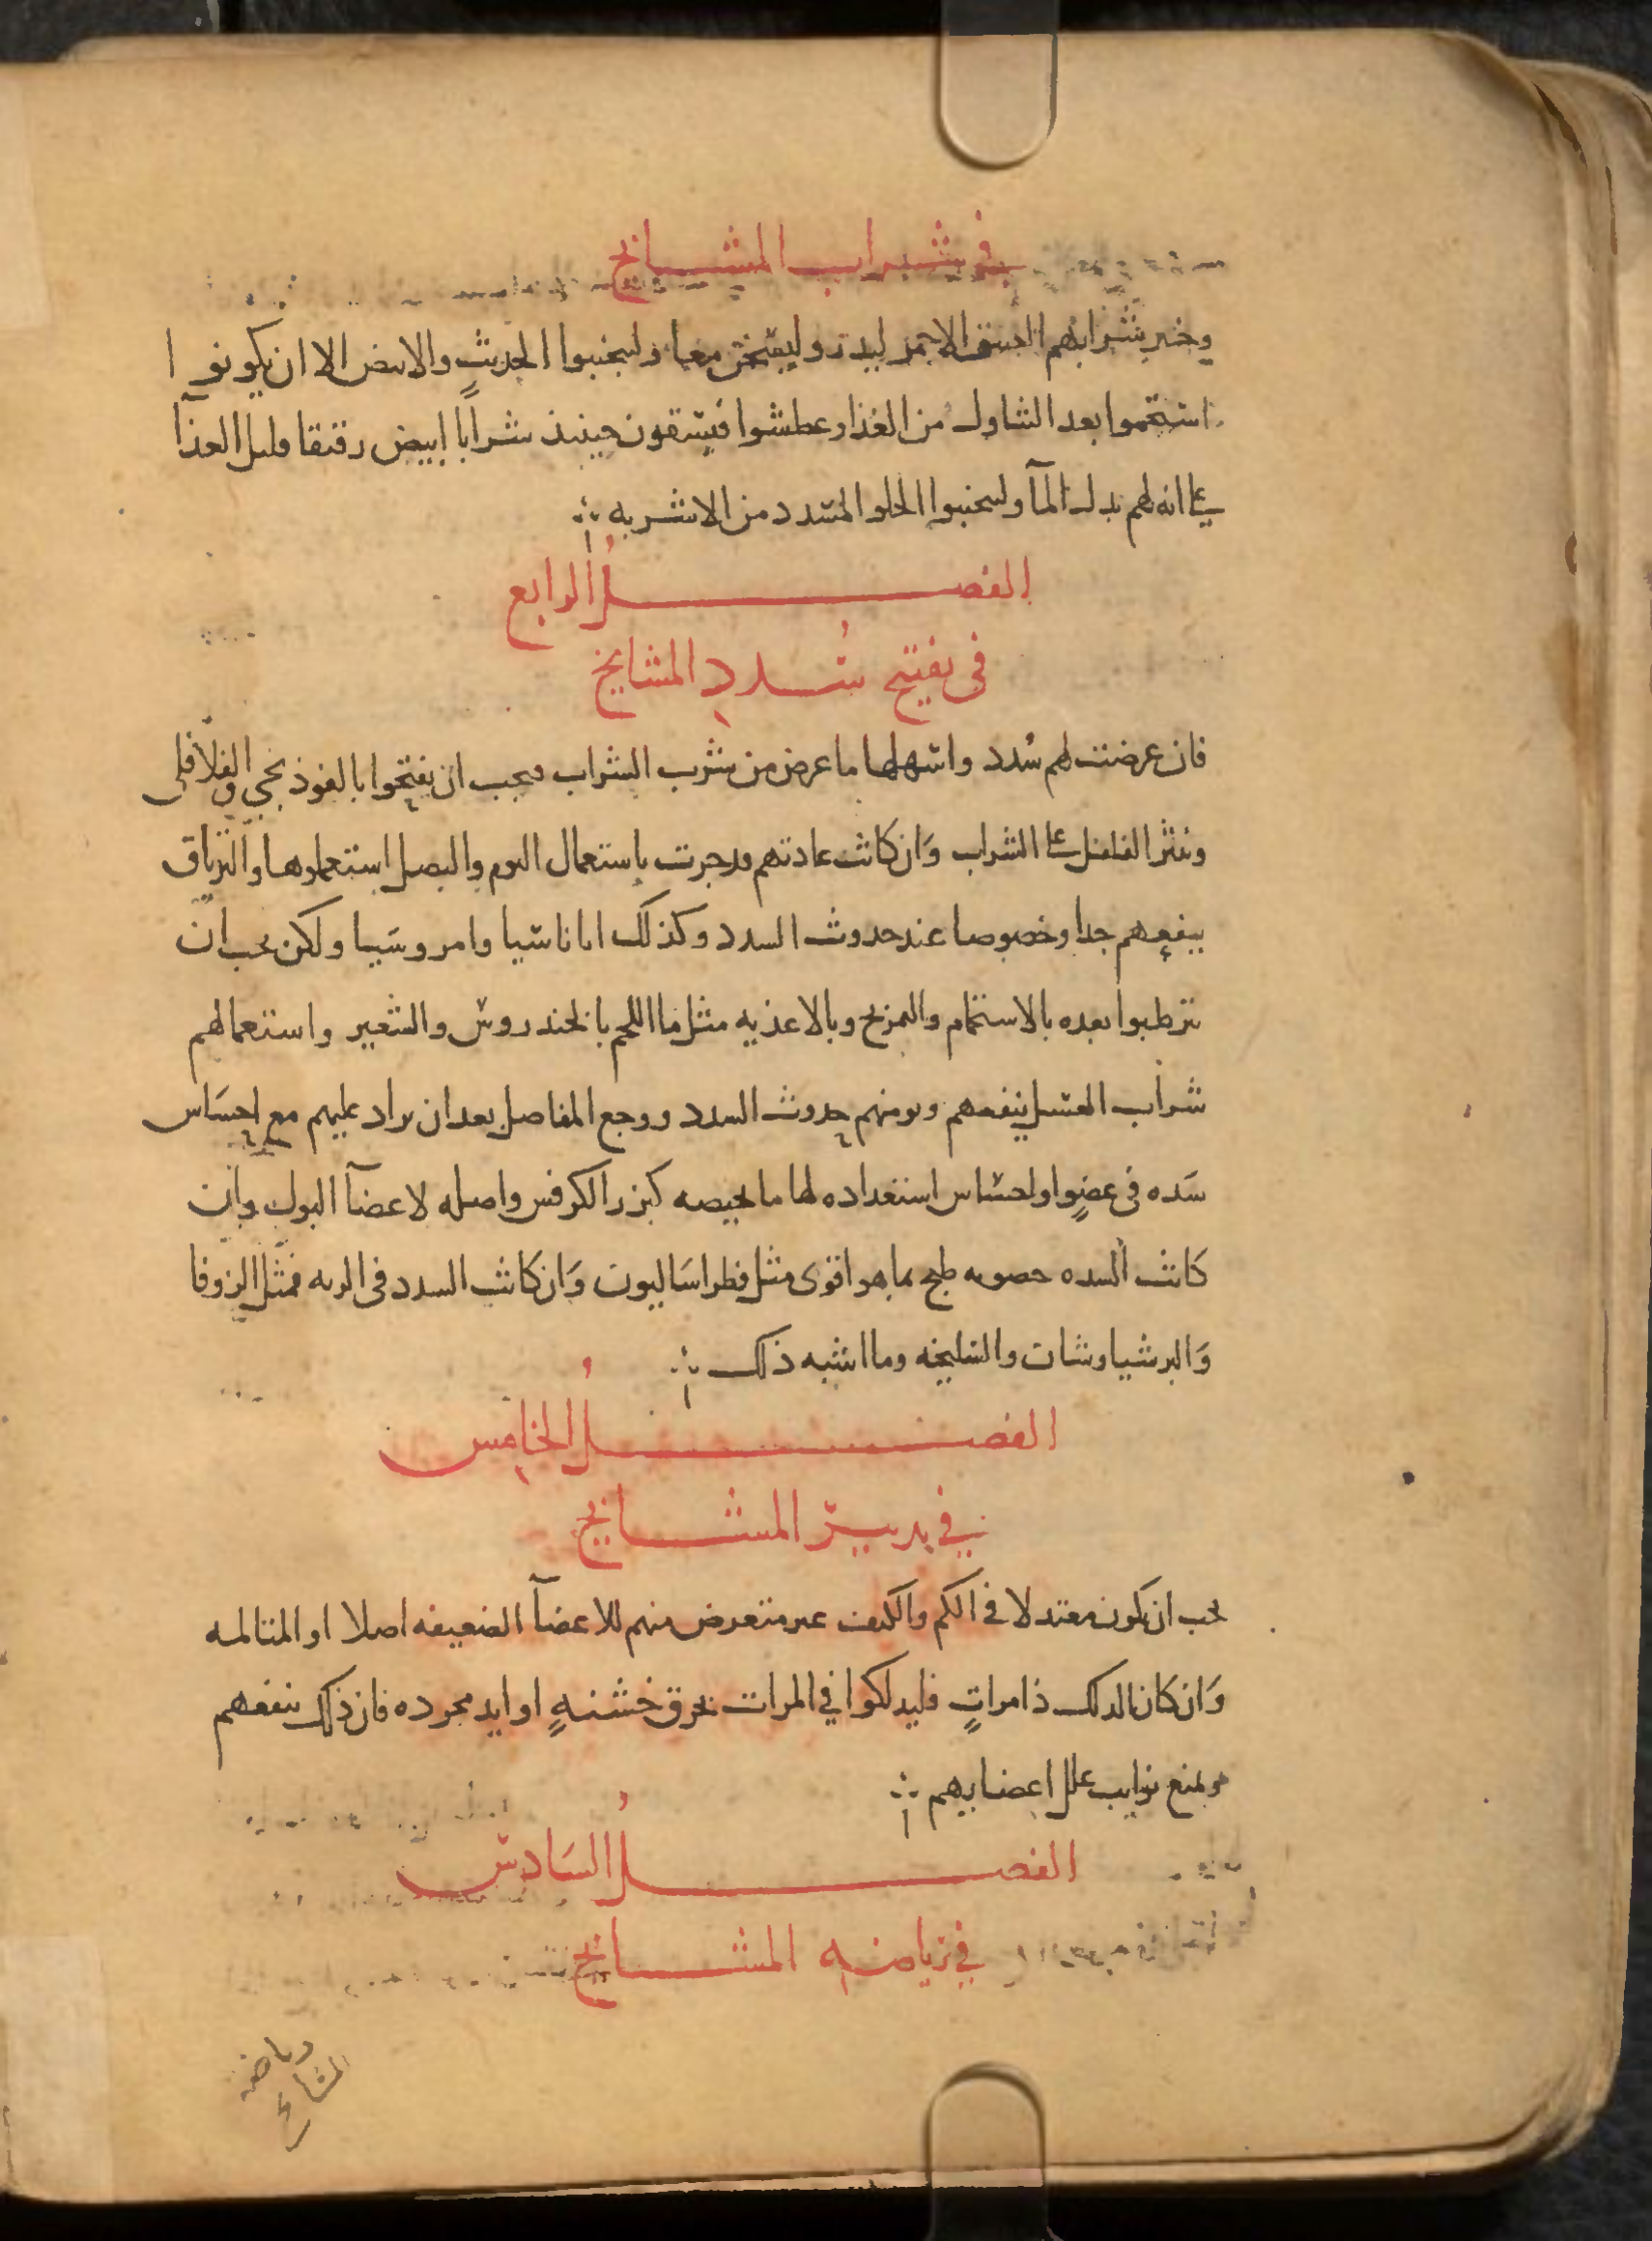 في شراب المشايخ
وخير شرابهم العتيق الاحمر ليدر وليسخن معا وليجتنبوا الحديث والابيض الا ان يكونوا
استحموا بعد التناول من الغذا وعطشوا فيسقون حينيذ شرابا ابيض رقيقا قليل الغذآ
على انه لهم بدل المآ وليجتنبوا الحلو المسدد من الاشربه
الفصل الرابع
في تفتيح سدد المشايخ
فان عرضت لهم سُدد واسهلها ما عرض من شرب الشراب فيجب ان يفتحوا بالفوذنجي والفلافلى
ونثر الفلفل على الشراب وَان كانت عادتهم قد جرت باستعمال الثوم والبصل استعملوها والترياق
ينفعهم جدا وخصوصا عند حدوث السدد وكذلك اثاناسيا وامروسَيا ولكن يجب ان
يترطبوا بعده بالاستحمام والتمريخ وبالاغذيه مثل ما اللحم بالخندروس والشعير واستعمالهم
شراب العسل ينفعهم ويومنهم حدوث السدد ووجع المفاصل بعد ان يزاد عليهم مع احسَاس
سَده في عضوٍ او احساس استعداده لها ما يخصه كبزر الكرفس واصله لاعضآ البول وان
كانت السده حصويه طبخ بما هو اقوى مثل فطراسَاليون وَان كانت السدد فى الريه فمثل الزوفا
وَالبرشياوشان والسليخه وما اشبه ذلك
الفصل الخامس
في دلك المشايخ
يجب ان يكون معتدلا في الكم والكيف غير متعرض منهم للاعضآ الضعيفه اصلا او المثانه
وَان كان الدلك ذا مراتٍ فليدلكوا في المرات بخرق خشنهٍ او ايد مجرده فان ذلك ينفعهم
ويمنع نوايب علل اعضايهم
الفصل السَادس
في رياضه المشايخ
رياضه
المشايخ